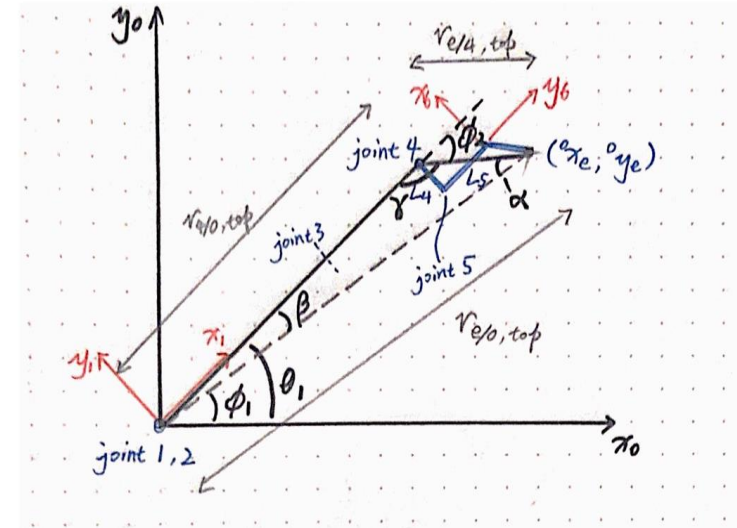 y₀
r e/4, top
x₆
y₆
joint 4
ϕ₂
(⁰xₑ, ⁰yₑ)
γ
L₄
L₅
α
r 4/0, top
joint 3
joint 5
β
r e/0, top
y₁
x₁
ϕ₁
θ₁
joint 1, 2
x₀